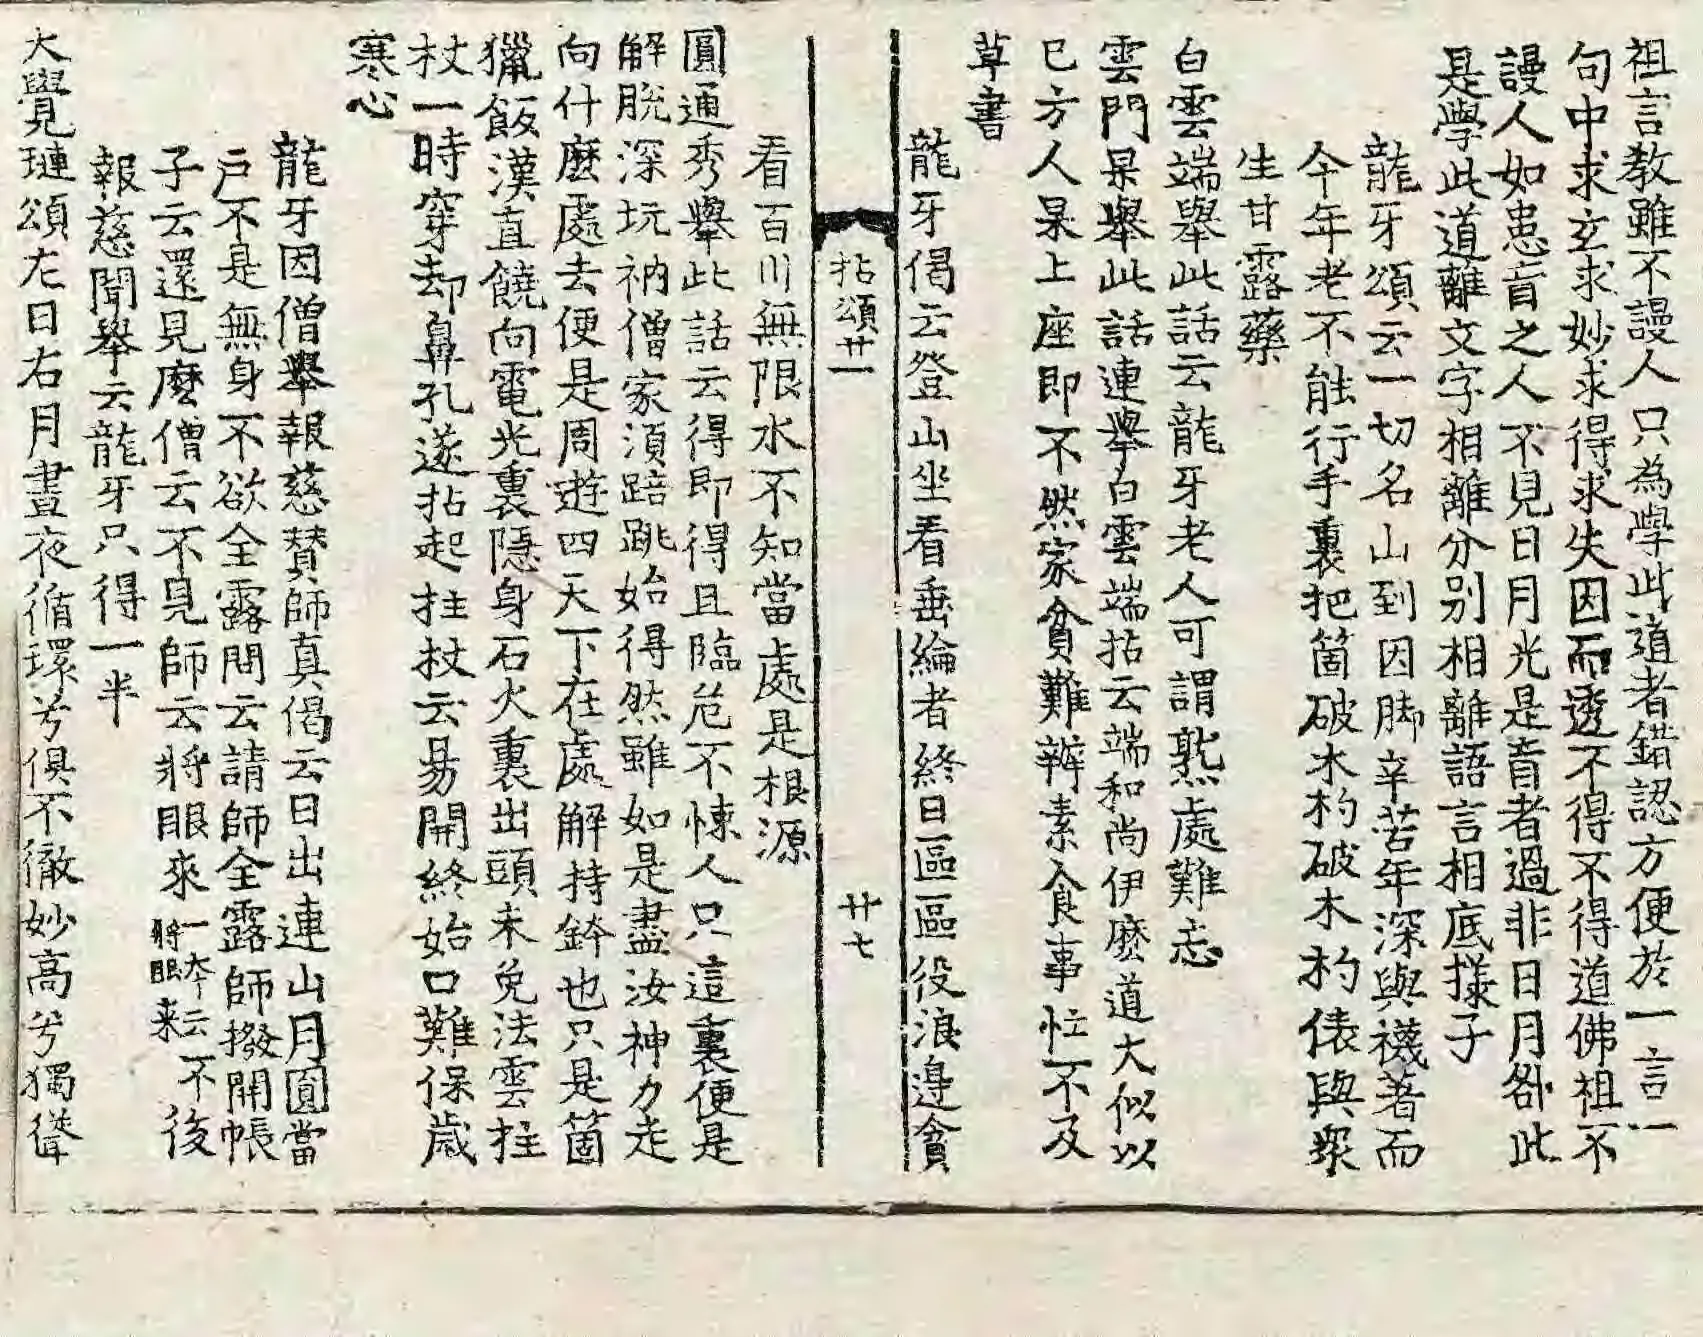 祖言教雖不謾人只為學此道者錯認方便於一言一
句中求玄求妙求得求失因而透不得不得道佛祖不
謾人如患盲之人不見日月光是盲者過非日月咎此
是學此道離文字相離分別相離語言相底㨾子
龍牙頌云一切名山到因脚辛苦年深與襪著而
今年老不能行手裏把箇破木杓破木杓俵與衆
生甘露藥
白雲端舉此話云龍牙老人可謂熟處難忘
雲門杲舉此話連舉白雲端拈云端和尚伊麽道大似以
己方人杲上座即不然家貧難辦素食事忙不及
草書
龍牙偈云登山坐看垂綸者終日區區役浪邊貪
拈頌廿一 廿七
看百川無限水不知當處是根源
圓通秀舉此話云得即得且臨危不悚人只這裏便是
解脫深坑衲僧家湏踣跳始得然雖如是盡汝神力走
向什麽處去便是周遊四天下在處解持鉢也只是箇
獵飯漢直饒向電光裏隱身石火裏出頭未免法雲拄
杖一時穿却鼻孔遂拈起拄杖云易開終始口難保歲
寒心
龍牙因僧舉報慈賛師真偈云日出連山月圓當
戶不是無身不欲全露問云請師全露師撥開帳
子云還見麽僧云不見師云將眼來一本云不將眼来後
報慈聞舉云龍牙只得一半
大覺璉頌左日右月晝夜循環兮俱不徹妙高兮獨聳